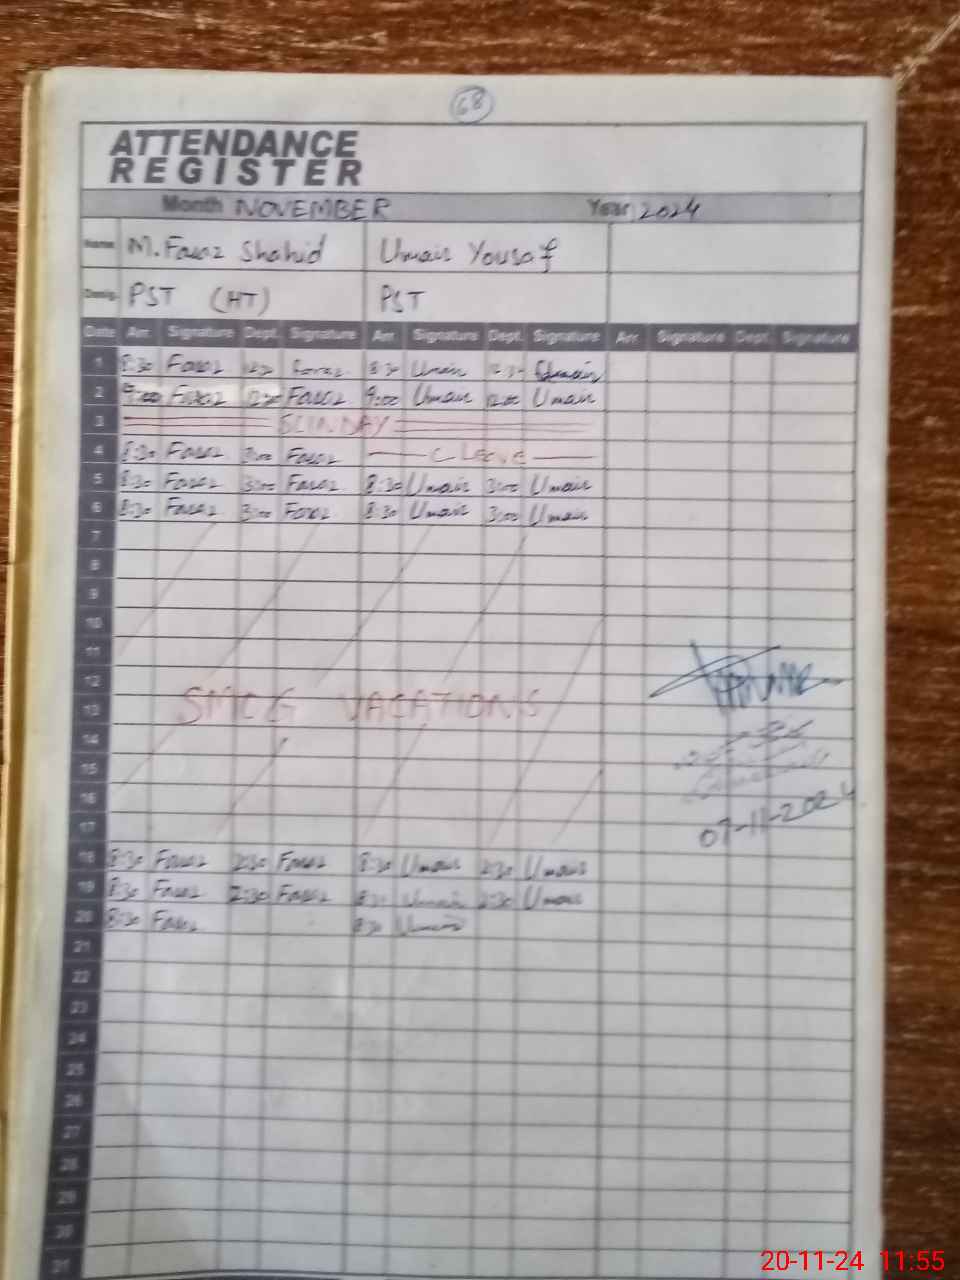 68
ATTENDANCE
REGISTER
Month NOVEMBER Year 2024
Name M. Faraz Shahid Umair Yousaf
Desig. PST (HT) PST
Date Arr. Signature Dept. Signature Arr. Signature Dept. Signature Arr. Signature Dept. Signature
1 8:30 Faraz 12:30 Faraz 8:30 Umair 12:30 Umair
2 9:00 Faraz 12:00 Faraz 9:00 Umair 12:00 Umair
3 SUNDAY
4 8:30 Faraz 3:00 Faraz C Leave
5 8:30 Faraz 3:00 Faraz 8:30 Umair 3:00 Umair
6 8:30 Faraz 3:00 Faraz 8:30 Umair 3:00 Umair
7
8
9
10
11
12
13 SMOG VACATIONS
14
15
16
17 07-11-2024
18 8:30 Faraz 2:30 Faraz 8:30 Umair 2:30 Umair
19 8:30 Faraz 2:30 Faraz 8:30 Umair 2:30 Umair
20 8:30 Faraz 8:30 Umair
21
22
23
24
25
26
27
28
29
30
31
20-11-24 11:55